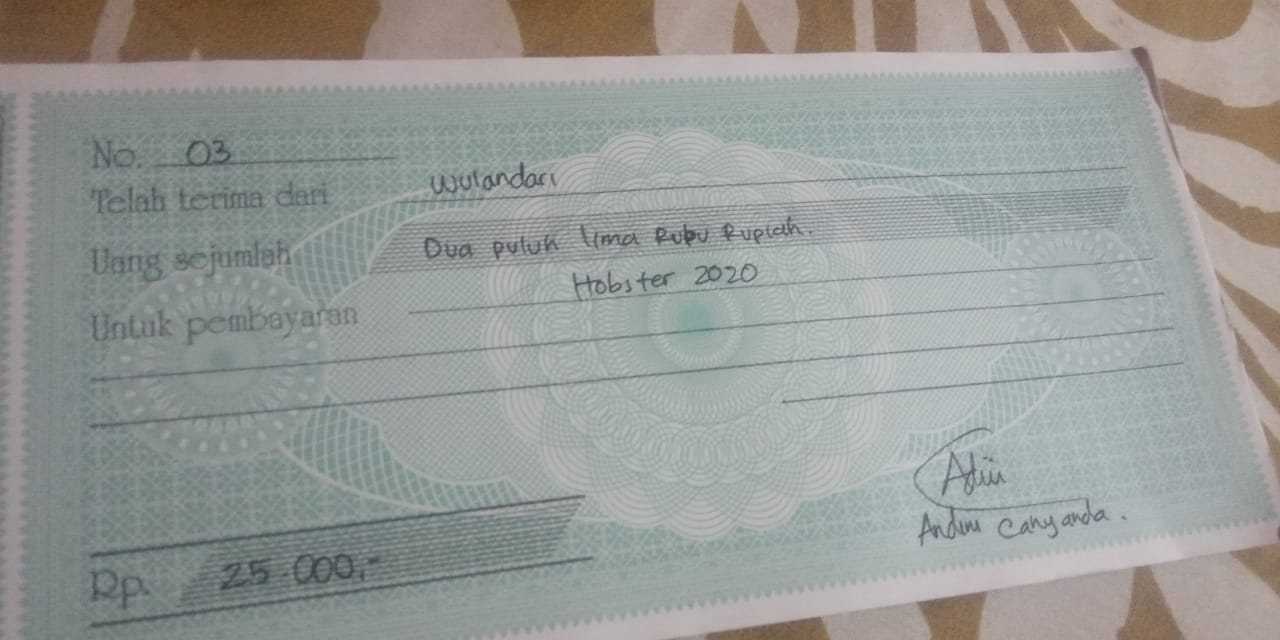 No. 03
Telah terima dari Wulandari
Uang sejumlah Dua puluh lima Rubu Rupiah.
Untuk pembayaran Hobster 2020
Andini Cahyanda.
Rp. 25.000,-